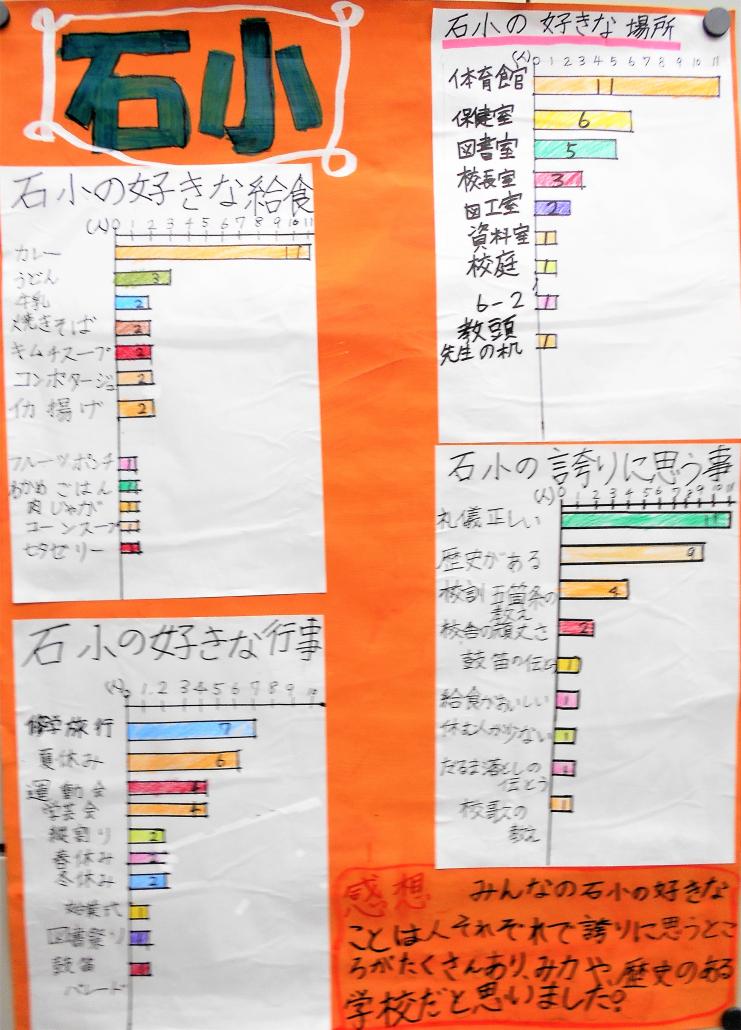 石小
石小の好きな給食
(人) 0 1 2 3 4 5 6 7 8 9 10 11
カレー 11
うどん 3
牛乳 2
焼きそば 2
キムチスープ 2
コンポタージュ 2
イカ揚げ 2
フルーツポンチ 1
わかめごはん 1
肉じゃが 1
コーンスープ 1
七夕ゼリー 1
石小の好きな行事
(人) 0 1 2 3 4 5 6 7 8 9 10
修学旅行 7
夏休み 6
運動会 4
学芸会 4
縦割り 2
春休み 2
冬休み 2
始業式 1
図書祭り 1
鼓笛 1
パレード
石小の好きな場所
(人) 0 1 2 3 4 5 6 7 8 9 10 11
体育館 11
保健室 6
図書室 5
校長室 3
図工室 2
資料室 1
校庭 1
6-2 1
教頭
先生の机 1
石小の誇りに思う事
(人) 0 1 2 3 4 5 6 7 8 9 10 11
礼儀正しい 11
歴史がある 9
校訓五箇条の 4
教え
校舎の頑丈さ 2
鼓笛の伝とう 1
給食がおいしい 1
休む人が少ない 1
だるま落としの 1
伝とう
校歌の 1
教え
感想 みんなの石小の好きな
ことは人それぞれで誇りに思うとこ
ろがたくさんあり、み力や、歴史のある
学校だと思いました。